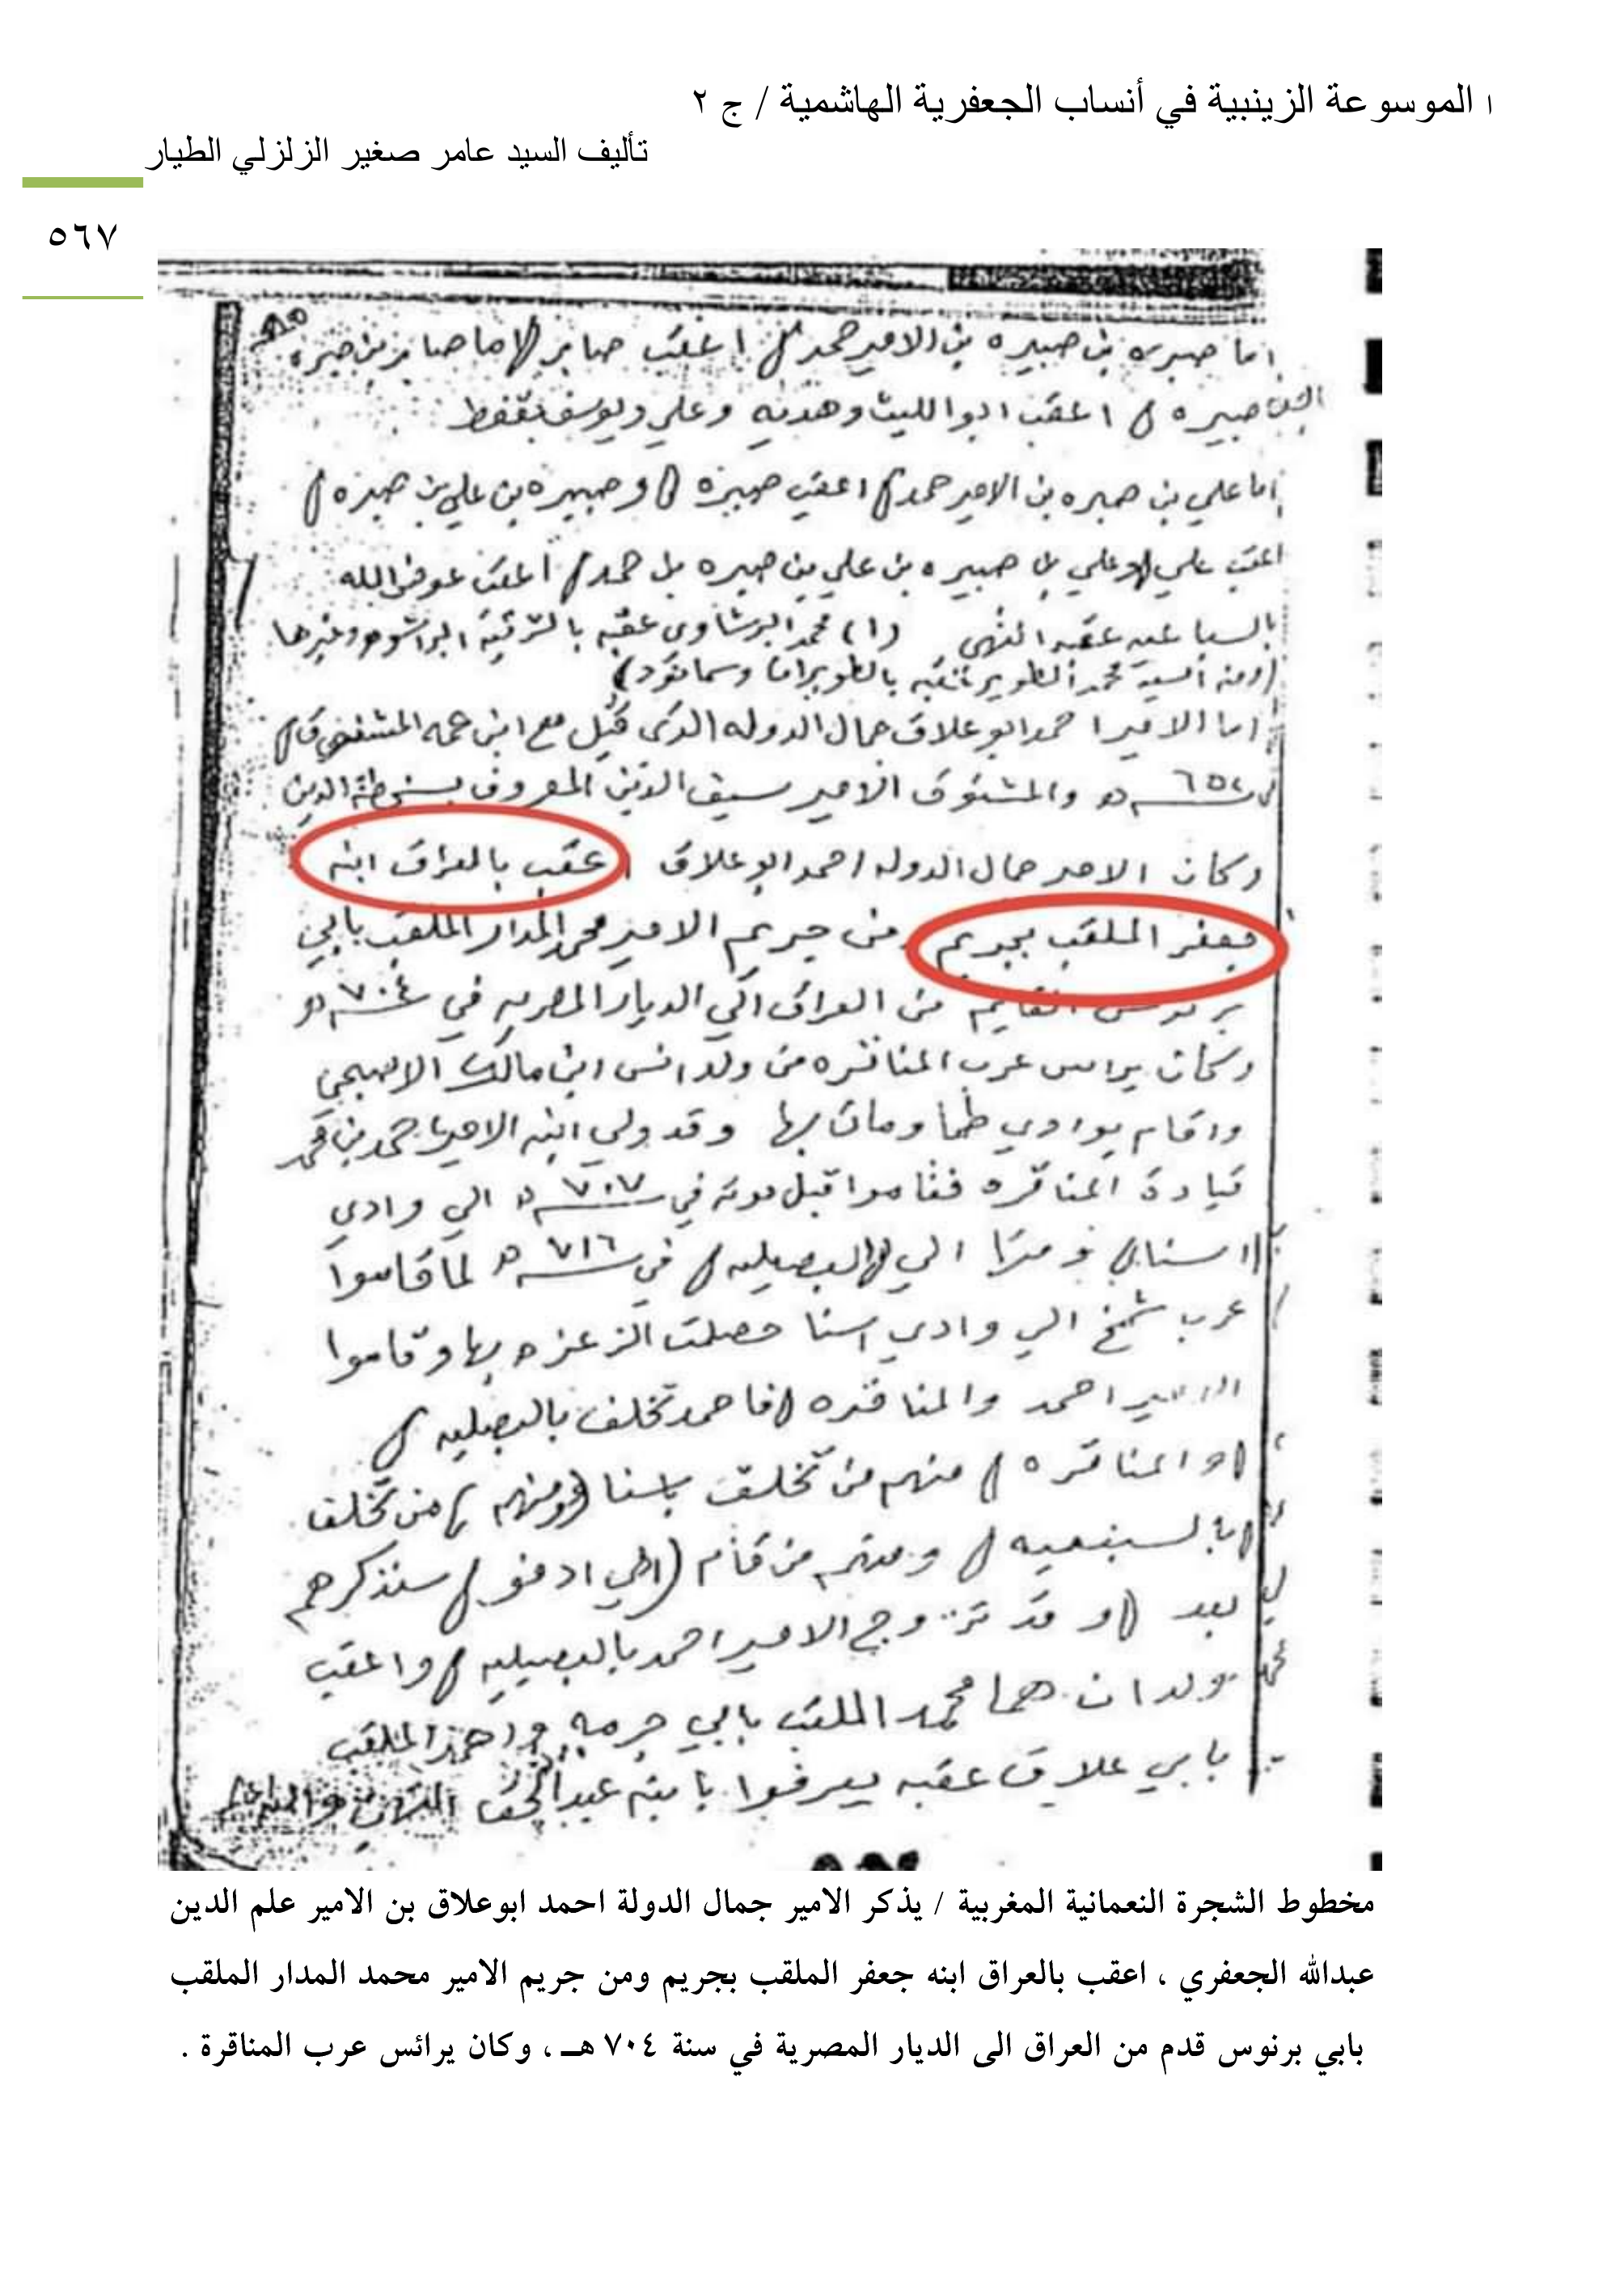 الموسوعة الزينبية في أنساب الجعفرية الهاشمية / ج ٢
تأليف السيد عامر صغير الزلزلي الطيار
٥٦٧
اما صبره بن صبيره بن الامير حمد اعقب صابر اما صابر بن صبره
صبيره اعقب ابو الليث وهديه وعلي ويوسف بقفط
اما علي بن صبره بن الامير حمد اعقب صبيره وصبيره بن علي بن صبره
اعقب علي وعلي بن صبيره بن علي بن صبره بن حمد اعقب عوض الله
بالسباعيه عقبه انتهى (١) محمد البرشاوى عقبه بالشرقيه وغيرها
(ومنه السيد محمد الطوير عقبه بالطويرات وسمانود)
اما الامير احمد ابو علاق جمال الدوله الذى قتل مع ابن عمه المشنوق
والمشنوق الامير سيف الدين المعروف
وكان الامير جمال الدوله احمد ابو علاق اعقب بالعراق ابنه
جعفر الملقب بجريم ومن جريم الامير محمد المدار الملقب بابي
برنوس القايم من العراق الي الديار المصريه في ٧٠٤ ه
وكان يرائس عرب المناقره من ولد انس ابن مالك الاصبحي
واقام بوادي طما ومات بها وقد ولي ابنه الامير احمد بن محمد
قيادة المناقره فقاموا قبل موته في ٧٠٧ ه الي وادي
اسنا الي البصيليه في ٧١٦ ه لما قاموا
عرب شمخ الي وادي اسنا حصلت الزعزه بها وقاموا
الامير احمد والمناقره فاحمد تخلف بالبصيليه
والمناقره منهم من تخلف باسنا ومنهم من تخلف
ومنهم من قام الي ادفو سنذكرهم
بعد وقد تزوج الامير احمد بالبصيليه واعقب
ولدان هما محمد الملقب بابي جرمه واحمد الملقب
بابي علاق عقبه يعرفوا بابنه عبد الحق
مخطوط الشجرة النعمانية المغربية / يذكر الامير جمال الدولة احمد ابوعلاق بن الامير علم الدين
عبدالله الجعفري ، اعقب بالعراق ابنه جعفر الملقب بجريم ومن جريم الامير محمد المدار الملقب
بابي برنوس قدم من العراق الى الديار المصرية في سنة ٧٠٤ هـ ، وكان يرائس عرب المناقرة .